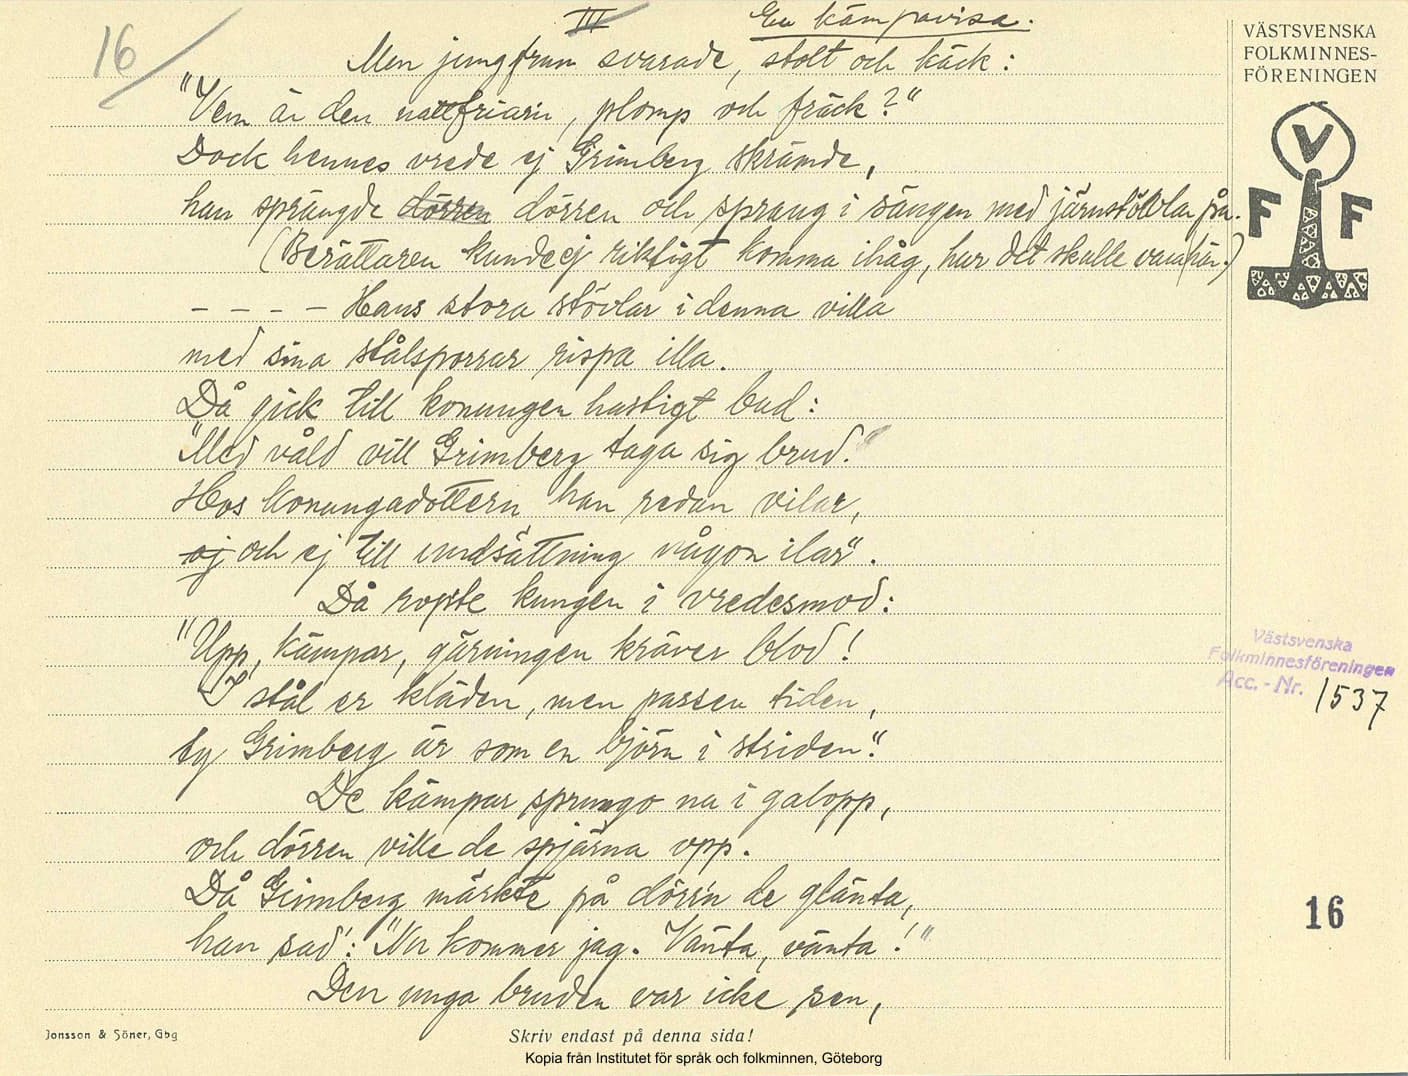 16
III
En kämpavisa.
Men jungfrun svarade, stolt och käck:
"Vem är den nattfriarn, plomp och fräck?"
Dock hennes vrede ej Grimberg skrämde,
han sprängde dörren dörren och sprang i sängen med järnstövlar på.
(Berättaren kunde ej riktigt komma ihåg, hur det skulle vara här.)
– – – – Hans stora stövlar i denna villa
med sina stålsporrar rispa illa.
Då gick till konungen hastigt bud:
"Med våld vill Grimberg taga sig brud."
Hos konungadottern han redan vilar,
ej och ej till undsättning någon ilar".
Då ropte kungen i vredesmod:
"Upp, kämpar, gärningen kräver blod!
I stål er kläden, men passen tiden,
ty Grimberg är som en björn i striden."
De kämpar sprungo na i galopp,
och dörren ville de spjärna opp.
Då Grimberg märkte på dörr'n de glänta,
han sad': "Nu kommer jag. Vänta, vänta!"
Den unga bruden var icke sen,
VÄSTSVENSKA
FOLKMINNES-
FÖRENINGEN
V
F F
Västsvenska
Folkminnesföreningen
Acc. - Nr. 1537
16
Jonsson & Söner, Gbg
Skriv endast på denna sida!
Kopia från Institutet för språk och folkminnen, Göteborg